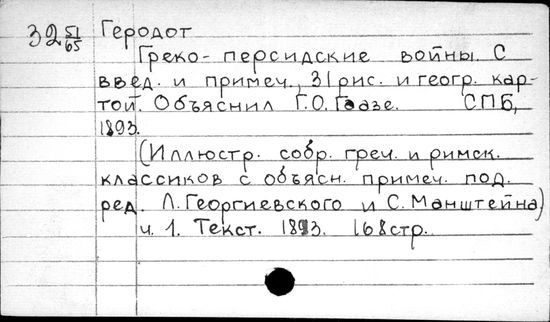 32 51/65 Геродот
Греко-персидские войны. С
введ. и примеч., 31 рис. и геогр. кар-
той. Объяснил Г.О. Гаазе. СПБ,
1893.
(Иллюстр. собр. греч. и римск.
классиков с объясн. примеч. под.
ред. Л. Георгиевского и С. Манштейна)
ч. 1. Текст. 1893. 168 стр.